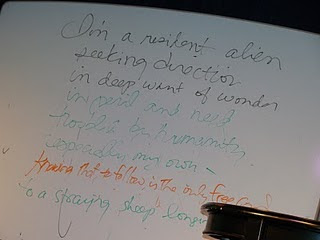 I'm a resident alien
seeking direction
in deep want of wonder
in peril and need
humanity
especially my own -
to follow is the only
to a straying sheep longin